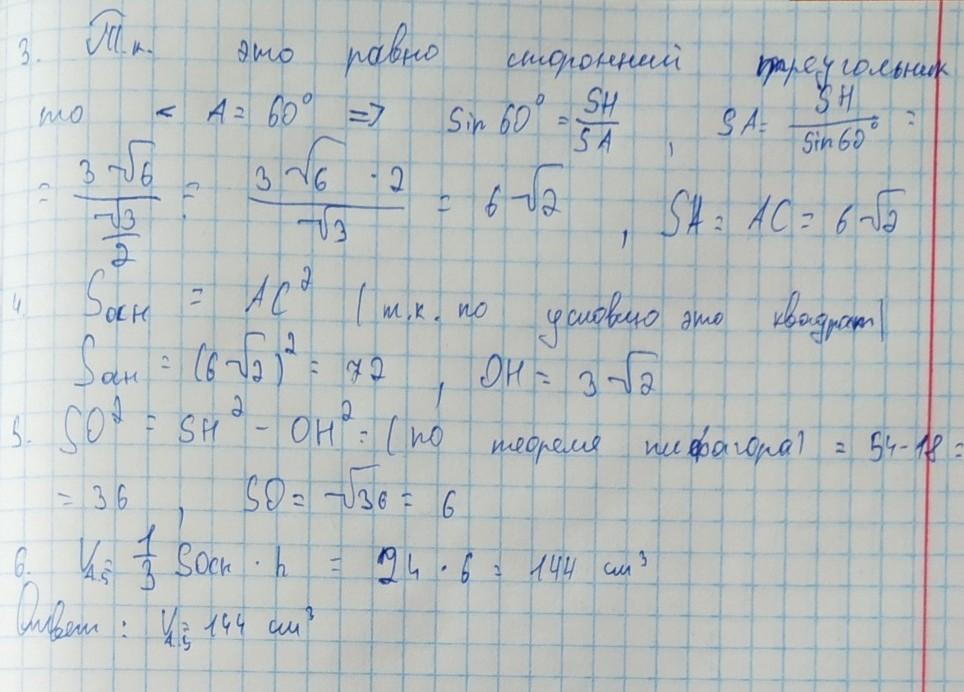 3. Т.к. это равно сторонний треугольник
то < A = 60° => Sin 60° = SH/SA , SA = SH/Sin60° =
= 3√6/(√3/2) = 3√6 · 2/√3 = 6√2 , SA = AC = 6√2
4. Sосн = AC² (т.к. по условию это квадрат)
Sосн = (6√2)² = 72 , OH = 3√2
5. SO² = SH² - OH² = (по теореме пифагора) = 54-18 =
= 36 , SO = √36 = 6
6. V = 1/3 Sосн · h = 24 · 6 = 144 см³
Ответ : V = 144 см³